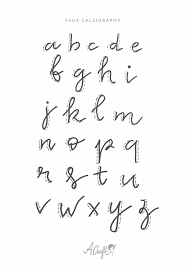 FAUX CALLIGRAPHY
a b c d e
f g h i
j k l m
n o p q
r s t u
v w x y z